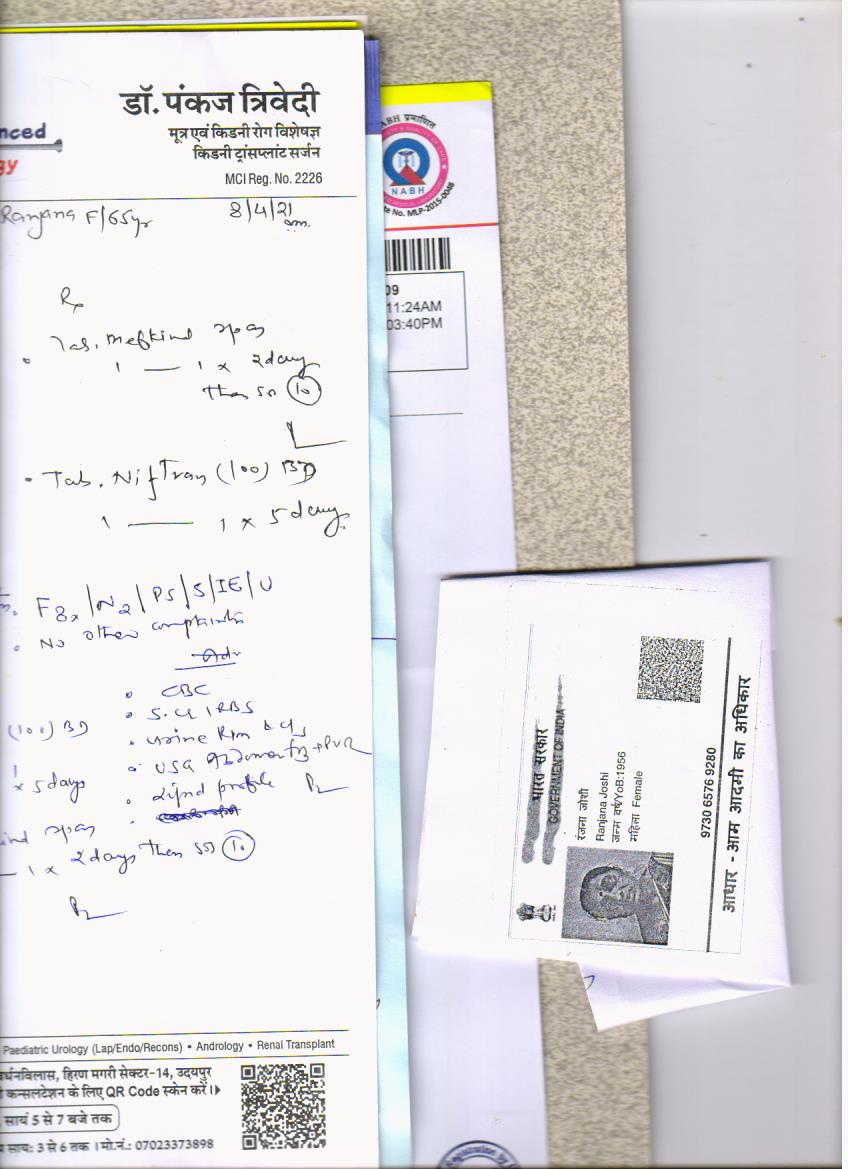 nced
gy
डॉ. पंकज त्रिवेदी
मूत्र एवं किडनी रोग विशेषज्ञ
किडनी ट्रांसप्लांट सर्जन
MCI Reg. No. 2226
Ranjana F/65yr 8/4/21
Rx
Tab. Mefkind spas
1 — 1 x 2 days
then SOS 10
Tab. NifTran (100) BD
1 — 1 x 5 days
F8x/N2/PS/S/IE/U
No other complaints
Adv
CBC
S. Cr / RBS
(100) BD
Urine R/m & c/s
USG + PVR
x 5 days
Lipid profile
ind spas
1 x 2 days then SOS 10
Paediatric Urology (Lap/Endo/Recons) • Andrology • Renal Transplant
र्धनविलास, हिरण मगरी सेक्टर-14, उदयपुर
कन्सलटेशन के लिए QR Code स्केन करें।
सायं 5 से 7 बजे तक
सायः 3 से 6 तक । मो.नं.: 07023373898
ABH प्रमाणित
NABH
te No. MLP-2015-0048
09
11:24AM
03:40PM
भारत सरकार
GOVERNMENT OF INDIA
रंजना जोशी
Ranjana Joshi
जन्म वर्ष/YoB:1956
महिला Female
9730 6576 9280
आधार - आम आदमी का अधिकार